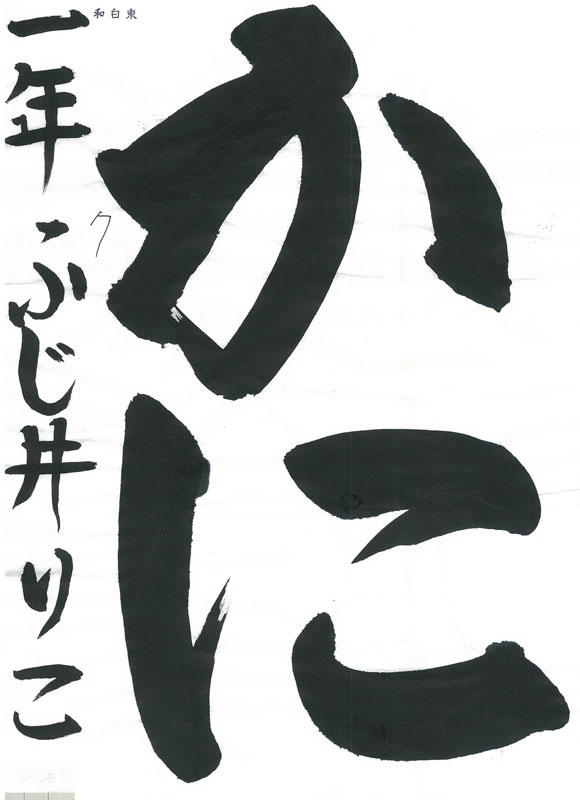 かに
一年 ふじ井りこ
東白和
ク